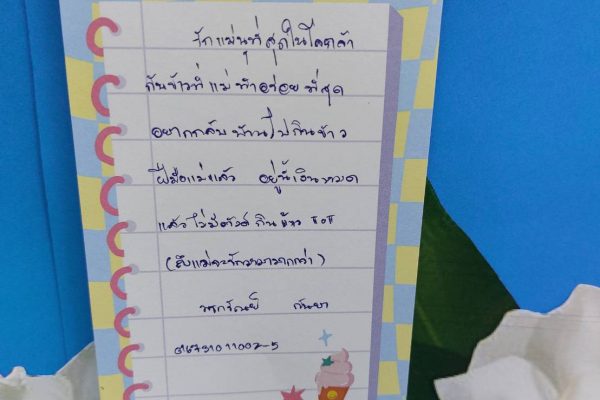 รักแม่นุที่สุดในโลกค้า
กับข้าวที่แม่ทำอร่อยที่สุด
อยากกลับบ้านไปกินข้าว
ฝีมือแม่แล้ว อยู่นี้เงินหมด
แล้วไม่มีตังค์กินข้าว ToT
(ลึบแม่จะรักมามากกว่า)
กันยา